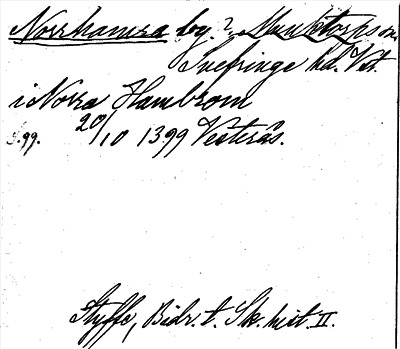 Norrhamra by? Munktorps sn.
Snefringe hd. Vstl.
i Norra Hambrom
S. 99. 20/10 1399 Vesterås.
Styffe, Bidr. t. Sk. hist. II.